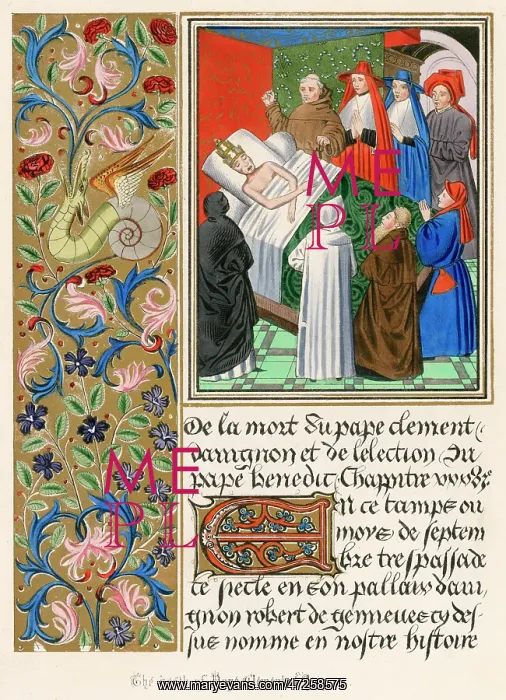 ME
PL
De la mort du pape clement
davignon et de lelection du
pape benedic Chapitre
En ce temps ou
moys de septem
bre trespassa de
ce siecle en son pallais davi,
gnon robert de genneues cy des,
sus nomme en nostre histoire
ME
PL
www.maryevans.com/47258575